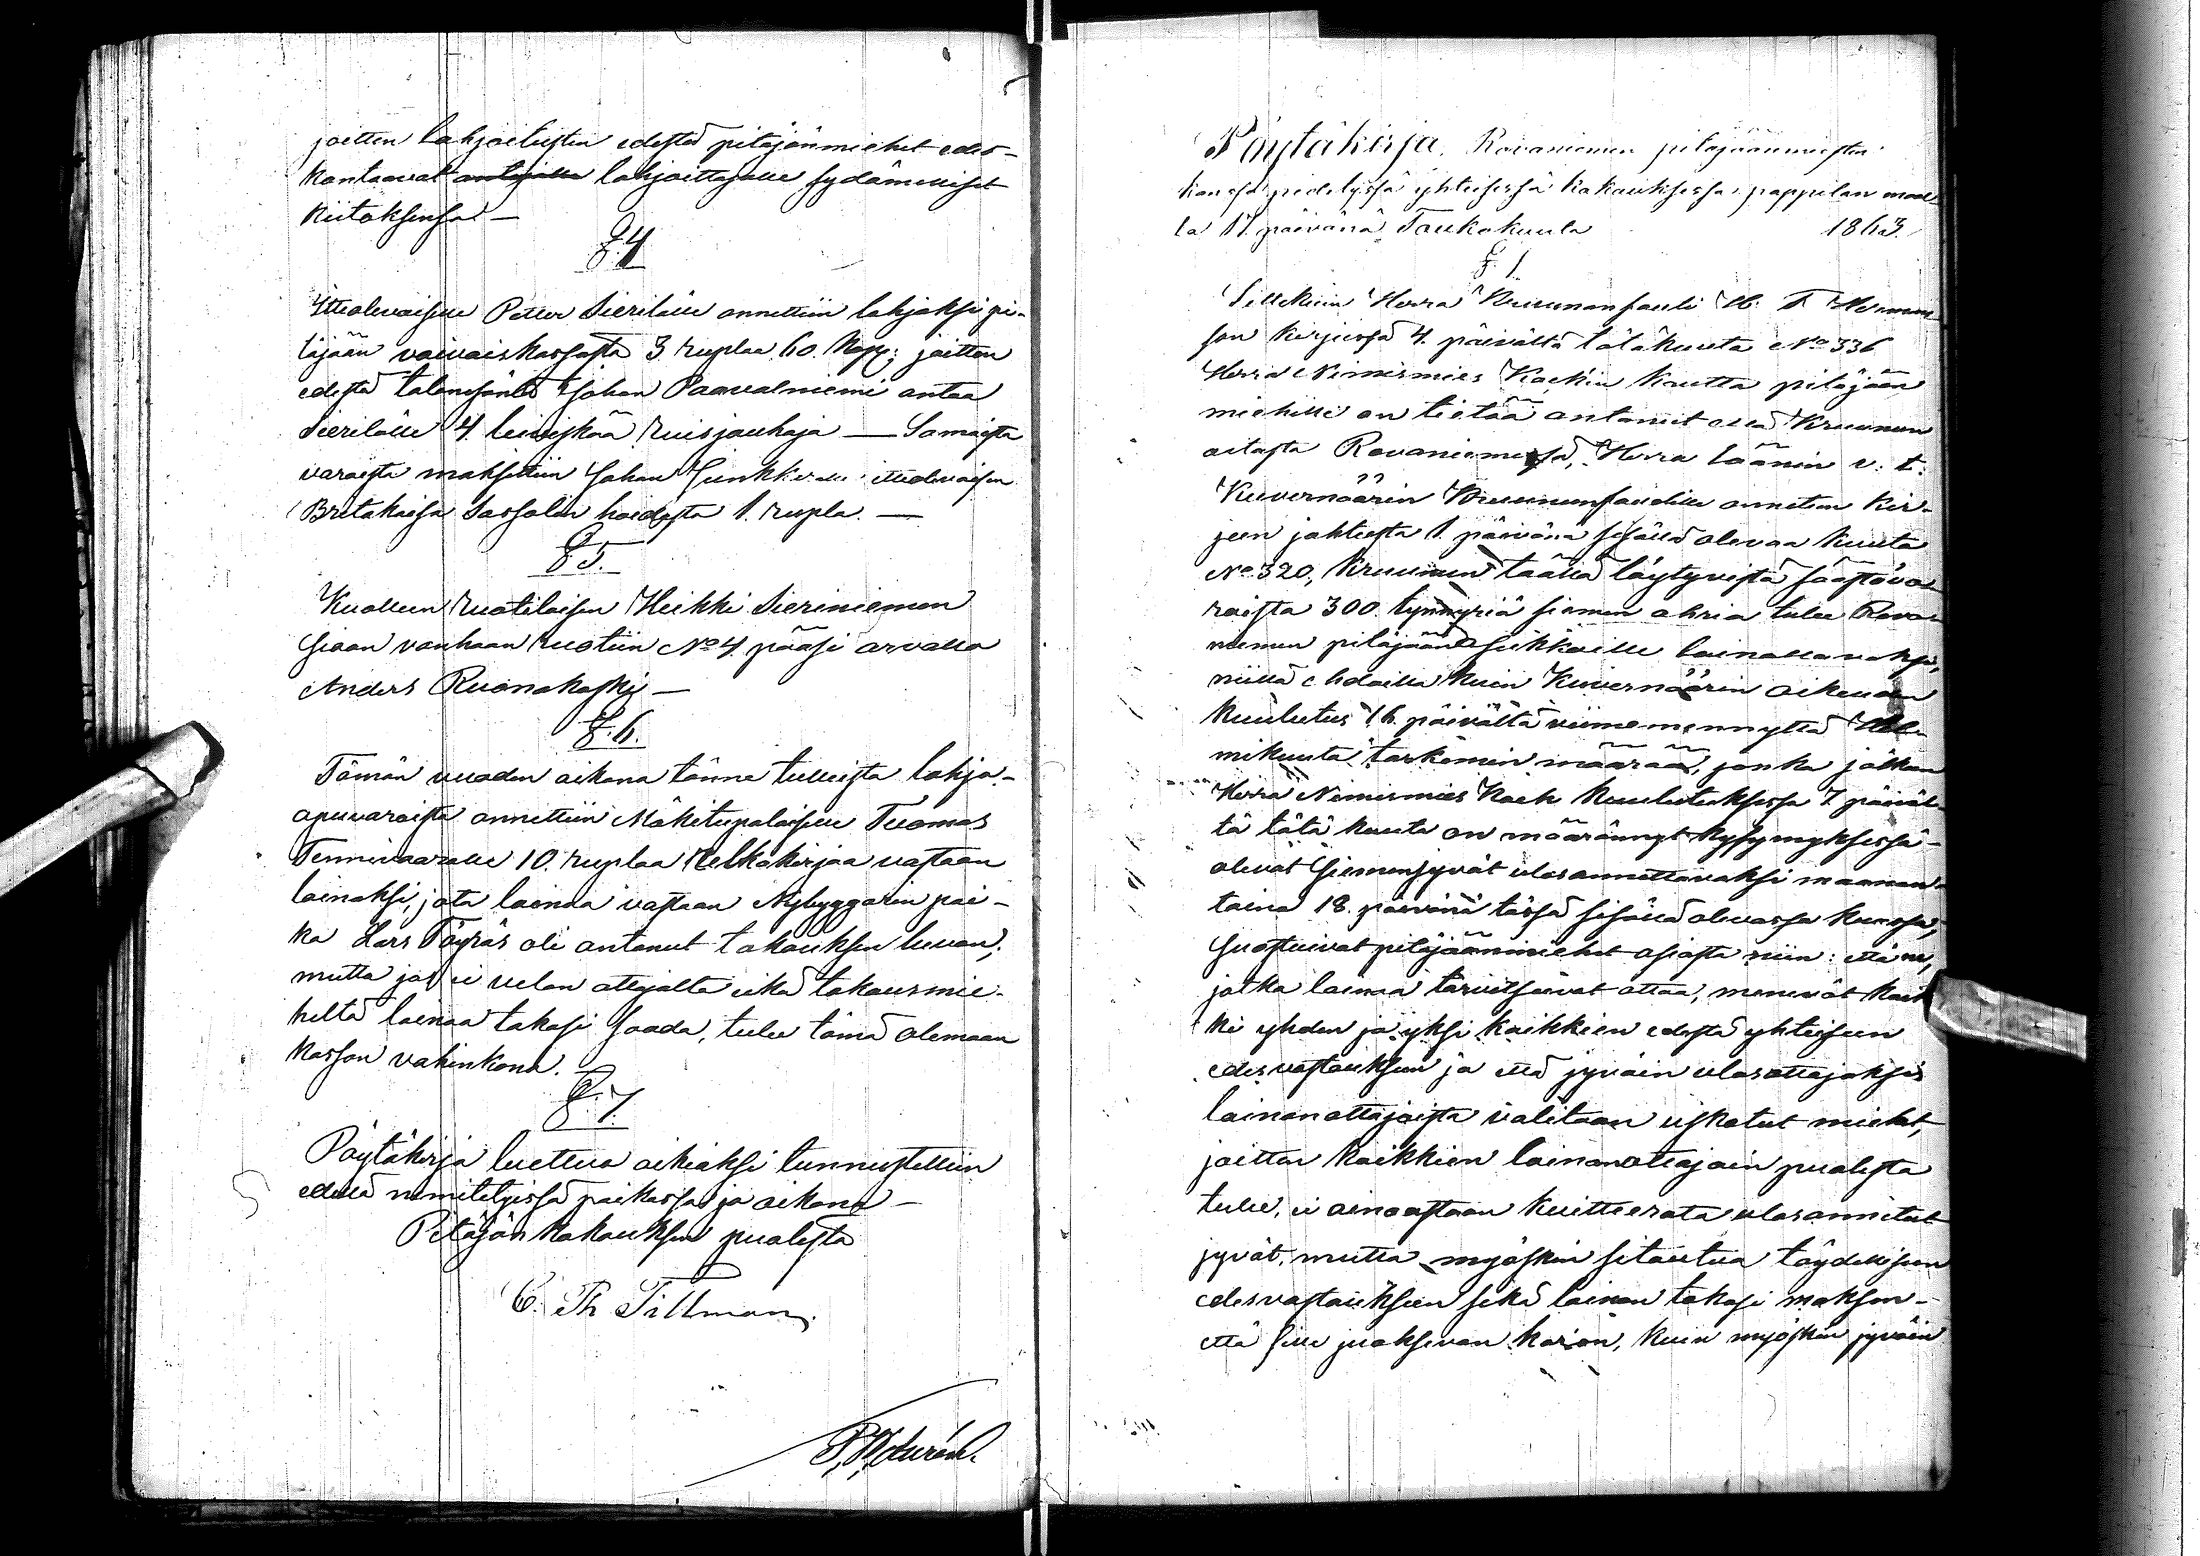 joitten lahjoitusten edestä pitäjänmiehet edes-
kantaavat antajalle lahjoittajalle sydämelliset
kiitoksensa —
§ 4
Itteolevaiselle Petter Sierilälle annettiin lahjaksi pi-
täjään vaivaiskassasta 3 ruplaa 60. kop; joitten
edestä talonisäntä Johan Paavalniemi antaa
Sierilälle 4. leiviskää ruisjauhoja — Samasta
varoista maksettiin Johan Junkkiralle itteolevaisen
Britakaisa Sassalin hoidosta 1. rupla. —
§ 5.
Kuolleen ruotilaisen Heikki Sieriniemen
sijaan vanhaan ruotiin No 4. pääsi arvalla
Anders Ruonakoski —
§. 6.
Tämän vuoden aikana tänne tulleista lahja-
apuvaroista annettiin Mäkitupalaiselle Tuomas
Tennivaaralle 10. ruplaa velkakirjaa vastaan
lainaksi, jota lainaa vastaan Nybyggarin poi-
ka Lars Töyräs oli antanut takauksen luvan;
mutta jos ei velan ottajalta eikä takausmie-
heltä lainaa takasi saada, tulee tämä olemaan
kassan vahinkona.
§. 7.
Pöytäkirja luettua oikiaksi tunnustettiin
edellä nimitetyissä paikassa ja aikana —
Pitäjän kokouksen puolesta
C. Th Tillman.
Pöytäkirja, Rovaniemen pitäjäänmiesten
kanssa pidetyssä yhteisessä kokouksessa pappilan maal-
la 17. päivänä Toukokuuta 1863.
§. 1.
Sittekuin Herra Kruununfouti H. F Herman-
son kirjeessä 4. päivältä tätäkuuta No 336
Herra Nimismies Kochin kautta pitäjään
miehille on tietää antanut että Kruunun
aitasta Rovaniemessä, Herra läänin v. t.
Kuvernöörin Kruununfoudille annetun kir-
jeen johteesta 1. päivänä sisällä olevaa kuuta
No 320, Kruunun täällä löytyvistä säästöva-
roista 300. tynnyriä siemen ohria tulee Rova-
niemen pitäjään asukkaille lainattavaksi,
niillä ehdoilla kuin Kuvernöörin oikeuden
kuulutus 16. päivältä viimemennyttä Hel-
mikuuta tarkemin määrää, jonka jälkeen
Herra Nimismies Koch kuulutuksessa 7 päiväl-
tä tätä kuuta on määrännyt kysymyksessä-
olevat siemenjyvät ulosannettavaksi maanan-
taina 18. päivänä tässä sisällä olevassa kuussa,
suostuivat pitäjäänmiehet asiasta niin: että ne,
jotka lainaa tarvitsevat ottaa, menevät kaik-
ki yhden ja yksi kaikkien edestä yhteiseen
edesvastaukseen ja että jyväin ulosottajaksi
lainanottajoista valitaan uskotut miehet,
joitten kaikkien lainanottajain puolesta
tulee, ei ainoastaan kuitteerata ulosannetut
jyvät, mutta myöskin sitoutua täydelliseen
edesvastaukseen sekä lainan takasi makson-
että sille juoksevan koron, kuin myöskin jyväin